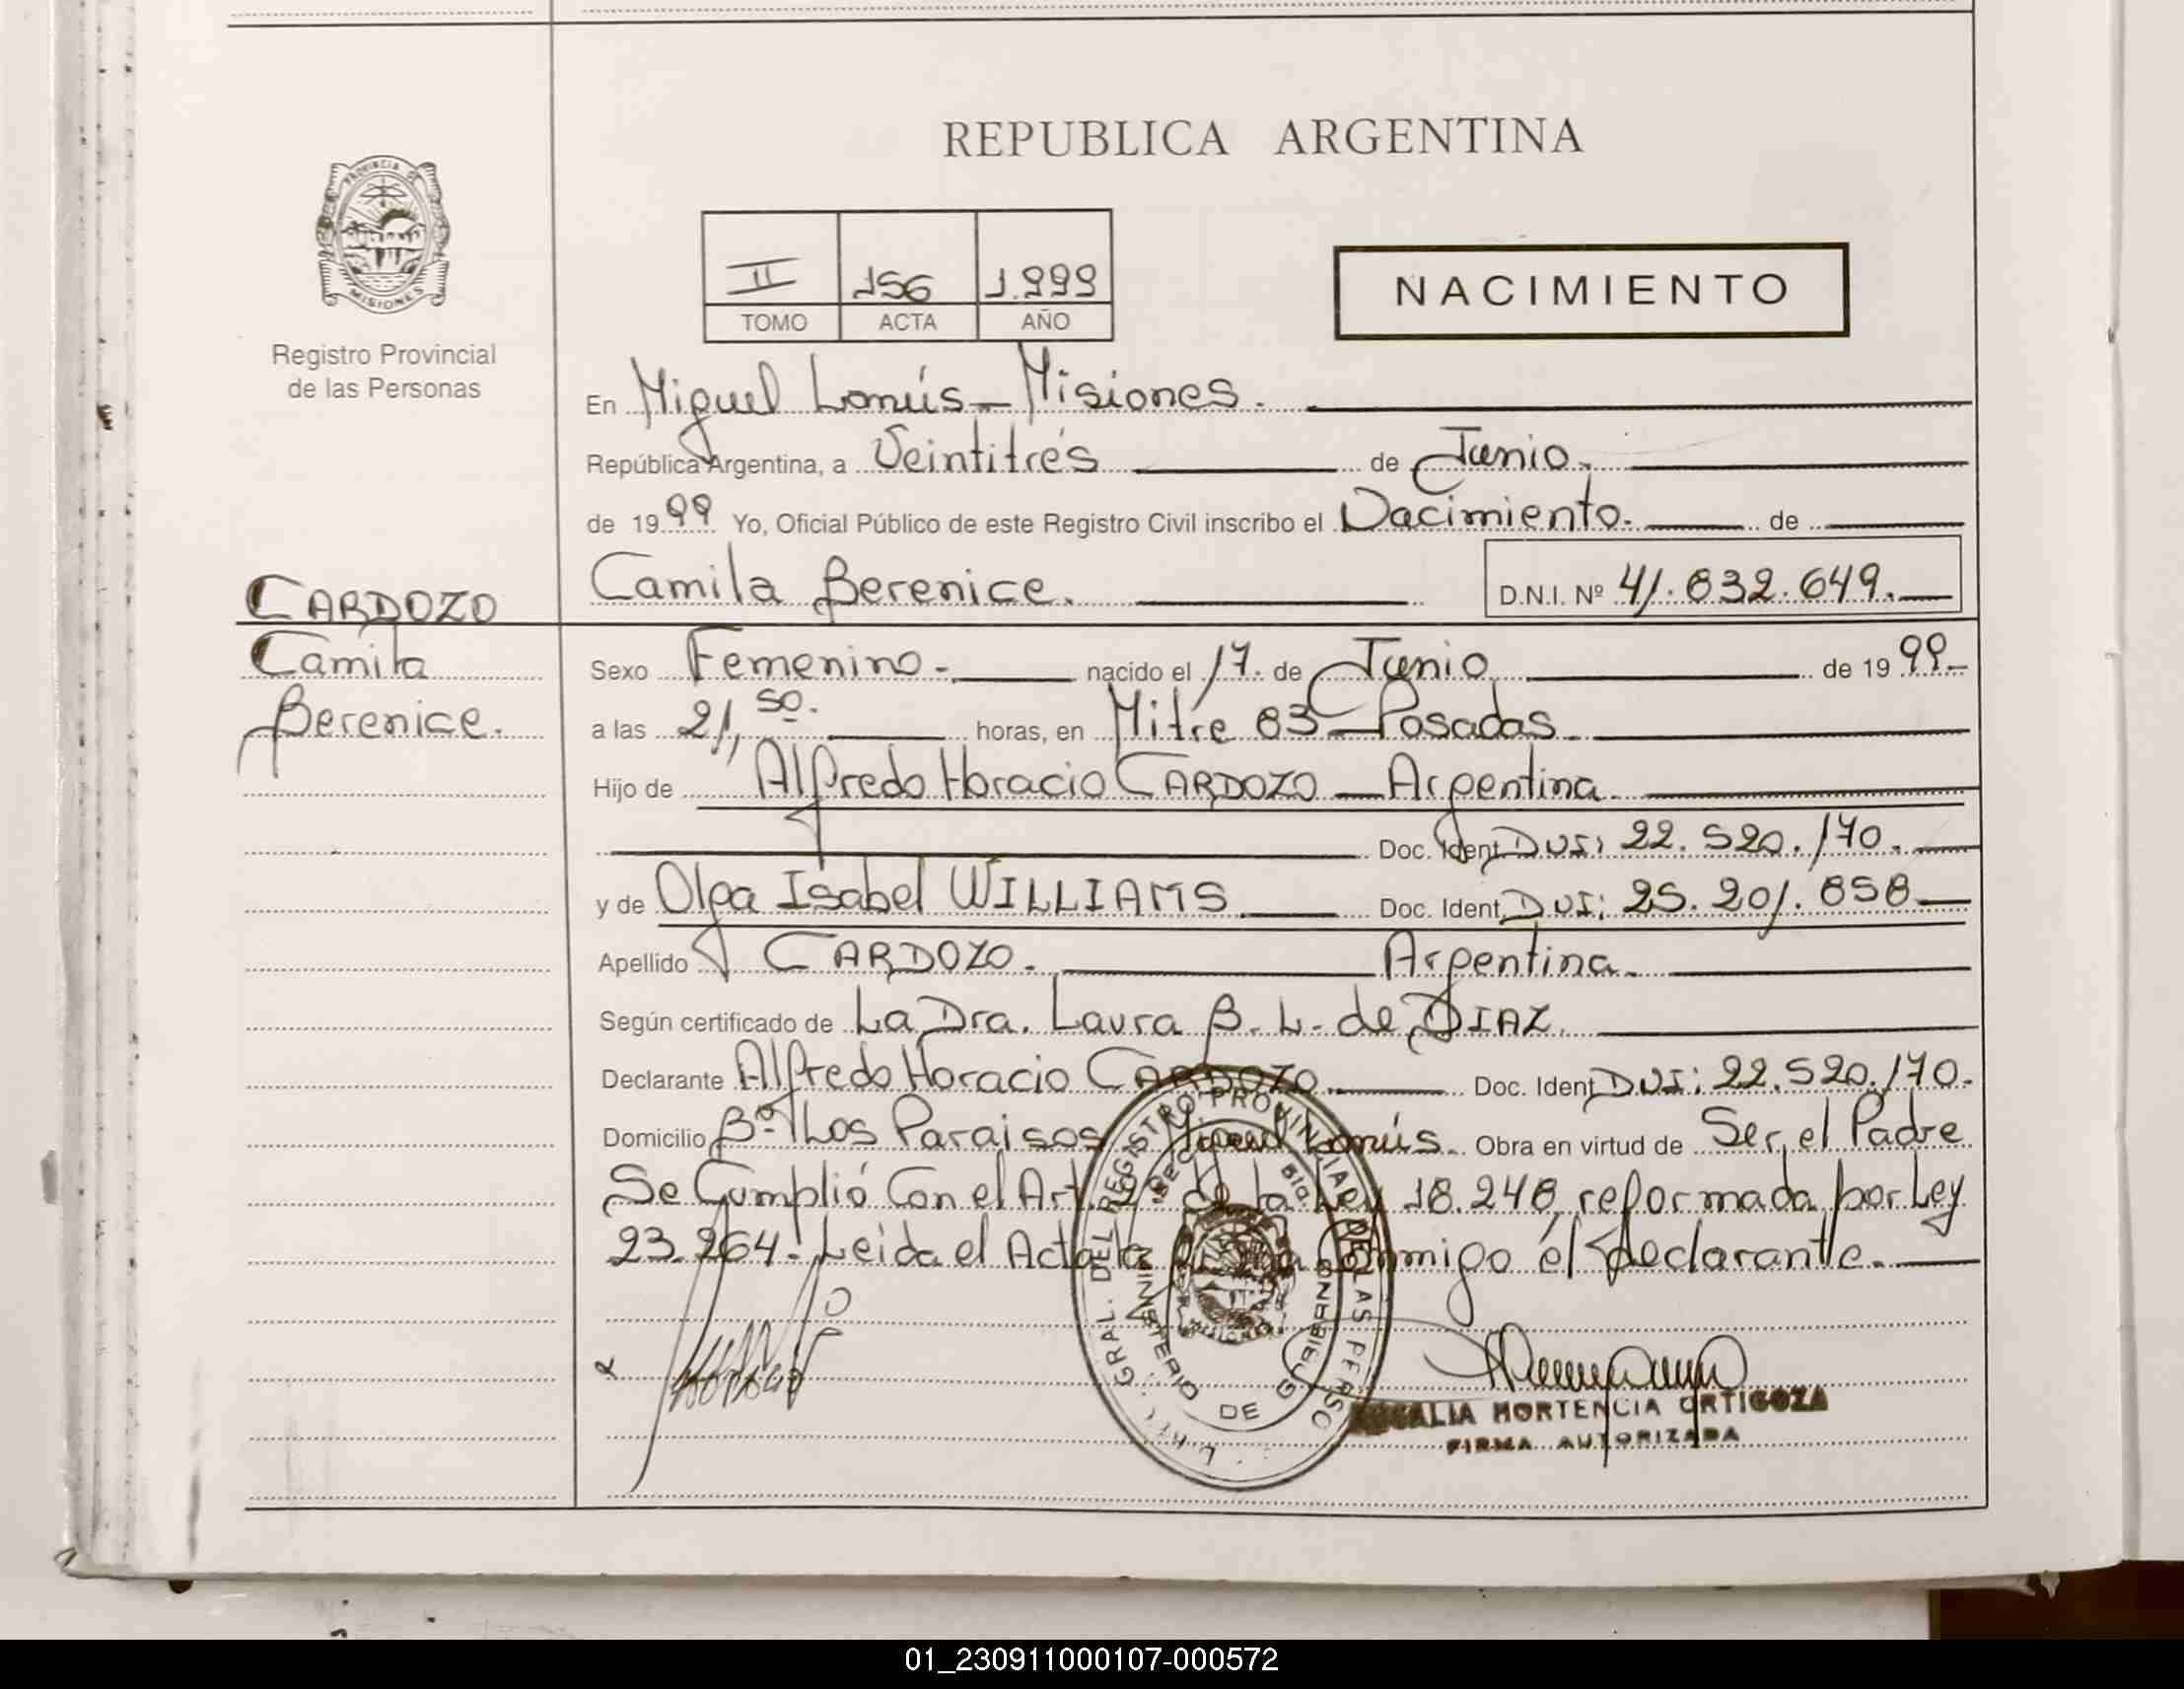 REPUBLICA ARGENTINA
PROVINCIA DE MISIONES
Registro Provincial
de las Personas
II 156 1.999
TOMO ACTA AÑO
NACIMIENTO
En Miguel Lanús - Misiones.
República Argentina, a Veintitrés de Junio.
de 1999 Yo, Oficial Público de este Registro Civil inscribo el Nacimiento. de
Camila Berenice. D.N.I. Nº 41.832.649.
CARDOZO
Camila
Berenice.
Sexo Femenino. nacido el 17. de Junio de 1999.
a las 21,50. horas, en Mitre 83 - Posadas.
Hijo de Alfredo Horacio CARDOZO - Argentina.
Doc. Ident. DNI: 22.520.170.
y de Olga Isabel WILLIAMS Doc. Ident. DNI: 25.201.858
Apellido CARDOZO. Argentina.
Según certificado de La Dra. Laura B. L. de DIAZ.
Declarante Alfredo Horacio CARDOZO. Doc. Ident. DNI: 22.520.170.
Domicilio Bº Los Paraisos Miguel Lanús. Obra en virtud de Ser el Padre
Se Cumplió Con el Art. 2º de la Ley 18.248, reformada por Ley
23.264. Leida el Acta la Conmigo el declarante.
GRAL. DEL REGISTRO PROVINCIAL DE LAS PERSO
MINISTERIO DE GOBIERNO
HORTENCIA ORTIGOZA
FIRMA AUTORIZADA
01_230911000107-000572